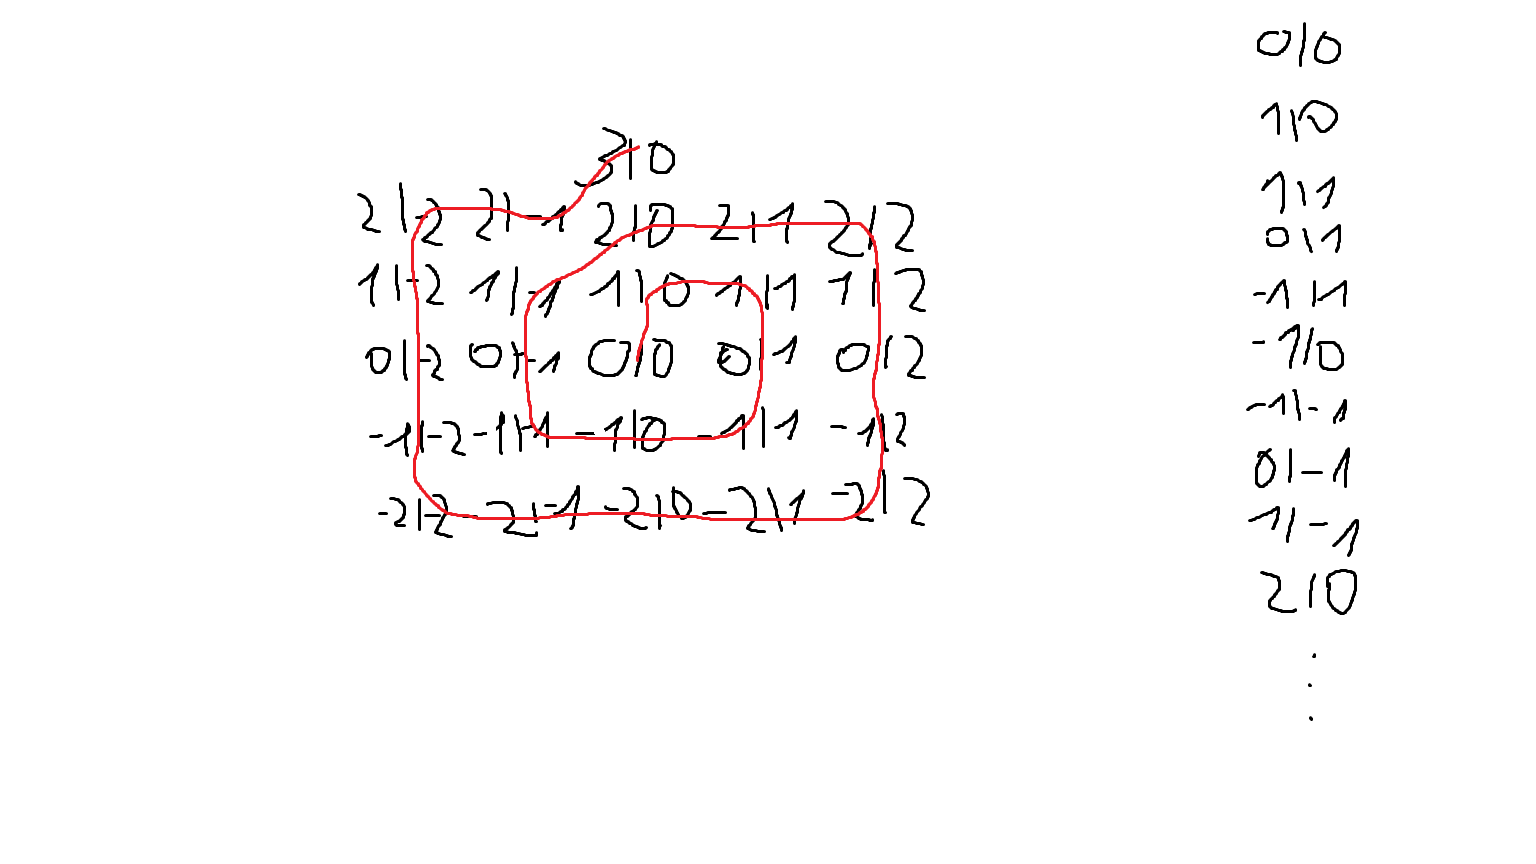 3|0
2|-2 2|-1 2|0 2|1 2|2
1|-2 1|-1 1|0 1|1 1|2
0|-2 0|-1 0|0 0|1 0|2
-1|-2 -1|-1 -1|0 -1|1 -1|2
-2|-2 -2|-1 -2|0 -2|1 -2|2
0|0
1|0
1|1
0|1
-1|1
-1|0
-1|-1
0|-1
1|-1
2|0
.
.
.